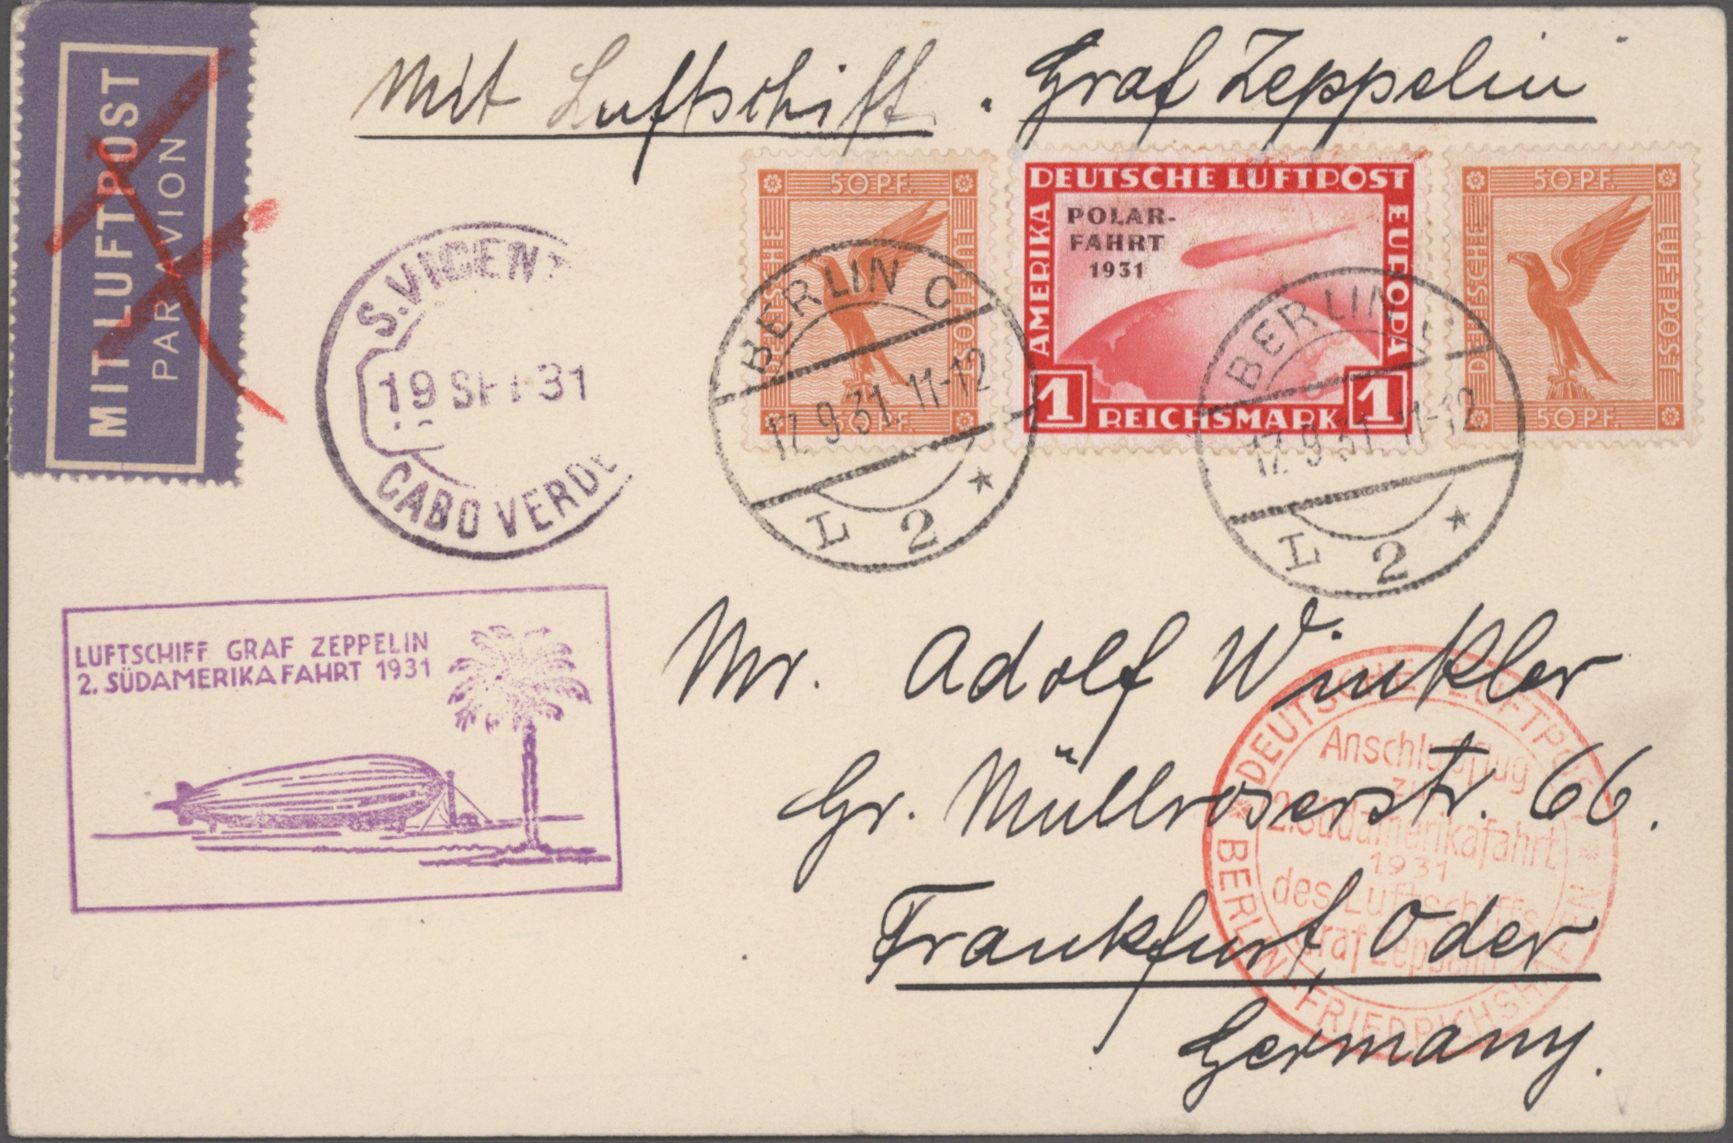 MIT LUFTPOST
PAR AVION
Mit Luftschiff. Graf Zeppelin
50 PF.
DEUTSCHE
LUFTPOST
50 PF.
DEUTSCHE LUFTPOST
AMERIKA
EUROPA
POLAR-
FAHRT
1931
1 REICHSMARK 1
50 PF.
DEUTSCHE
LUFTPOST
50 PF.
S.VICENT
19 SET 31
CABO VERDE
BERLIN C
17.9.31.11-12
L 2
BERLIN
17.9.31.11-12
L 2
LUFTSCHIFF GRAF ZEPPELIN
2. SÜDAMERIKAFAHRT 1931
Mr. Adolf Winkler
Gr. Müllroserstr. 66.
Frankfurt, Oder
Germany.
DEUTSCHE LUFTPOST
Anschlußflug
zur
2.Südamerikafahrt
1931
des Luftschiffs
Graf Zeppelin
BERLIN-FRIEDRICHSHAFEN